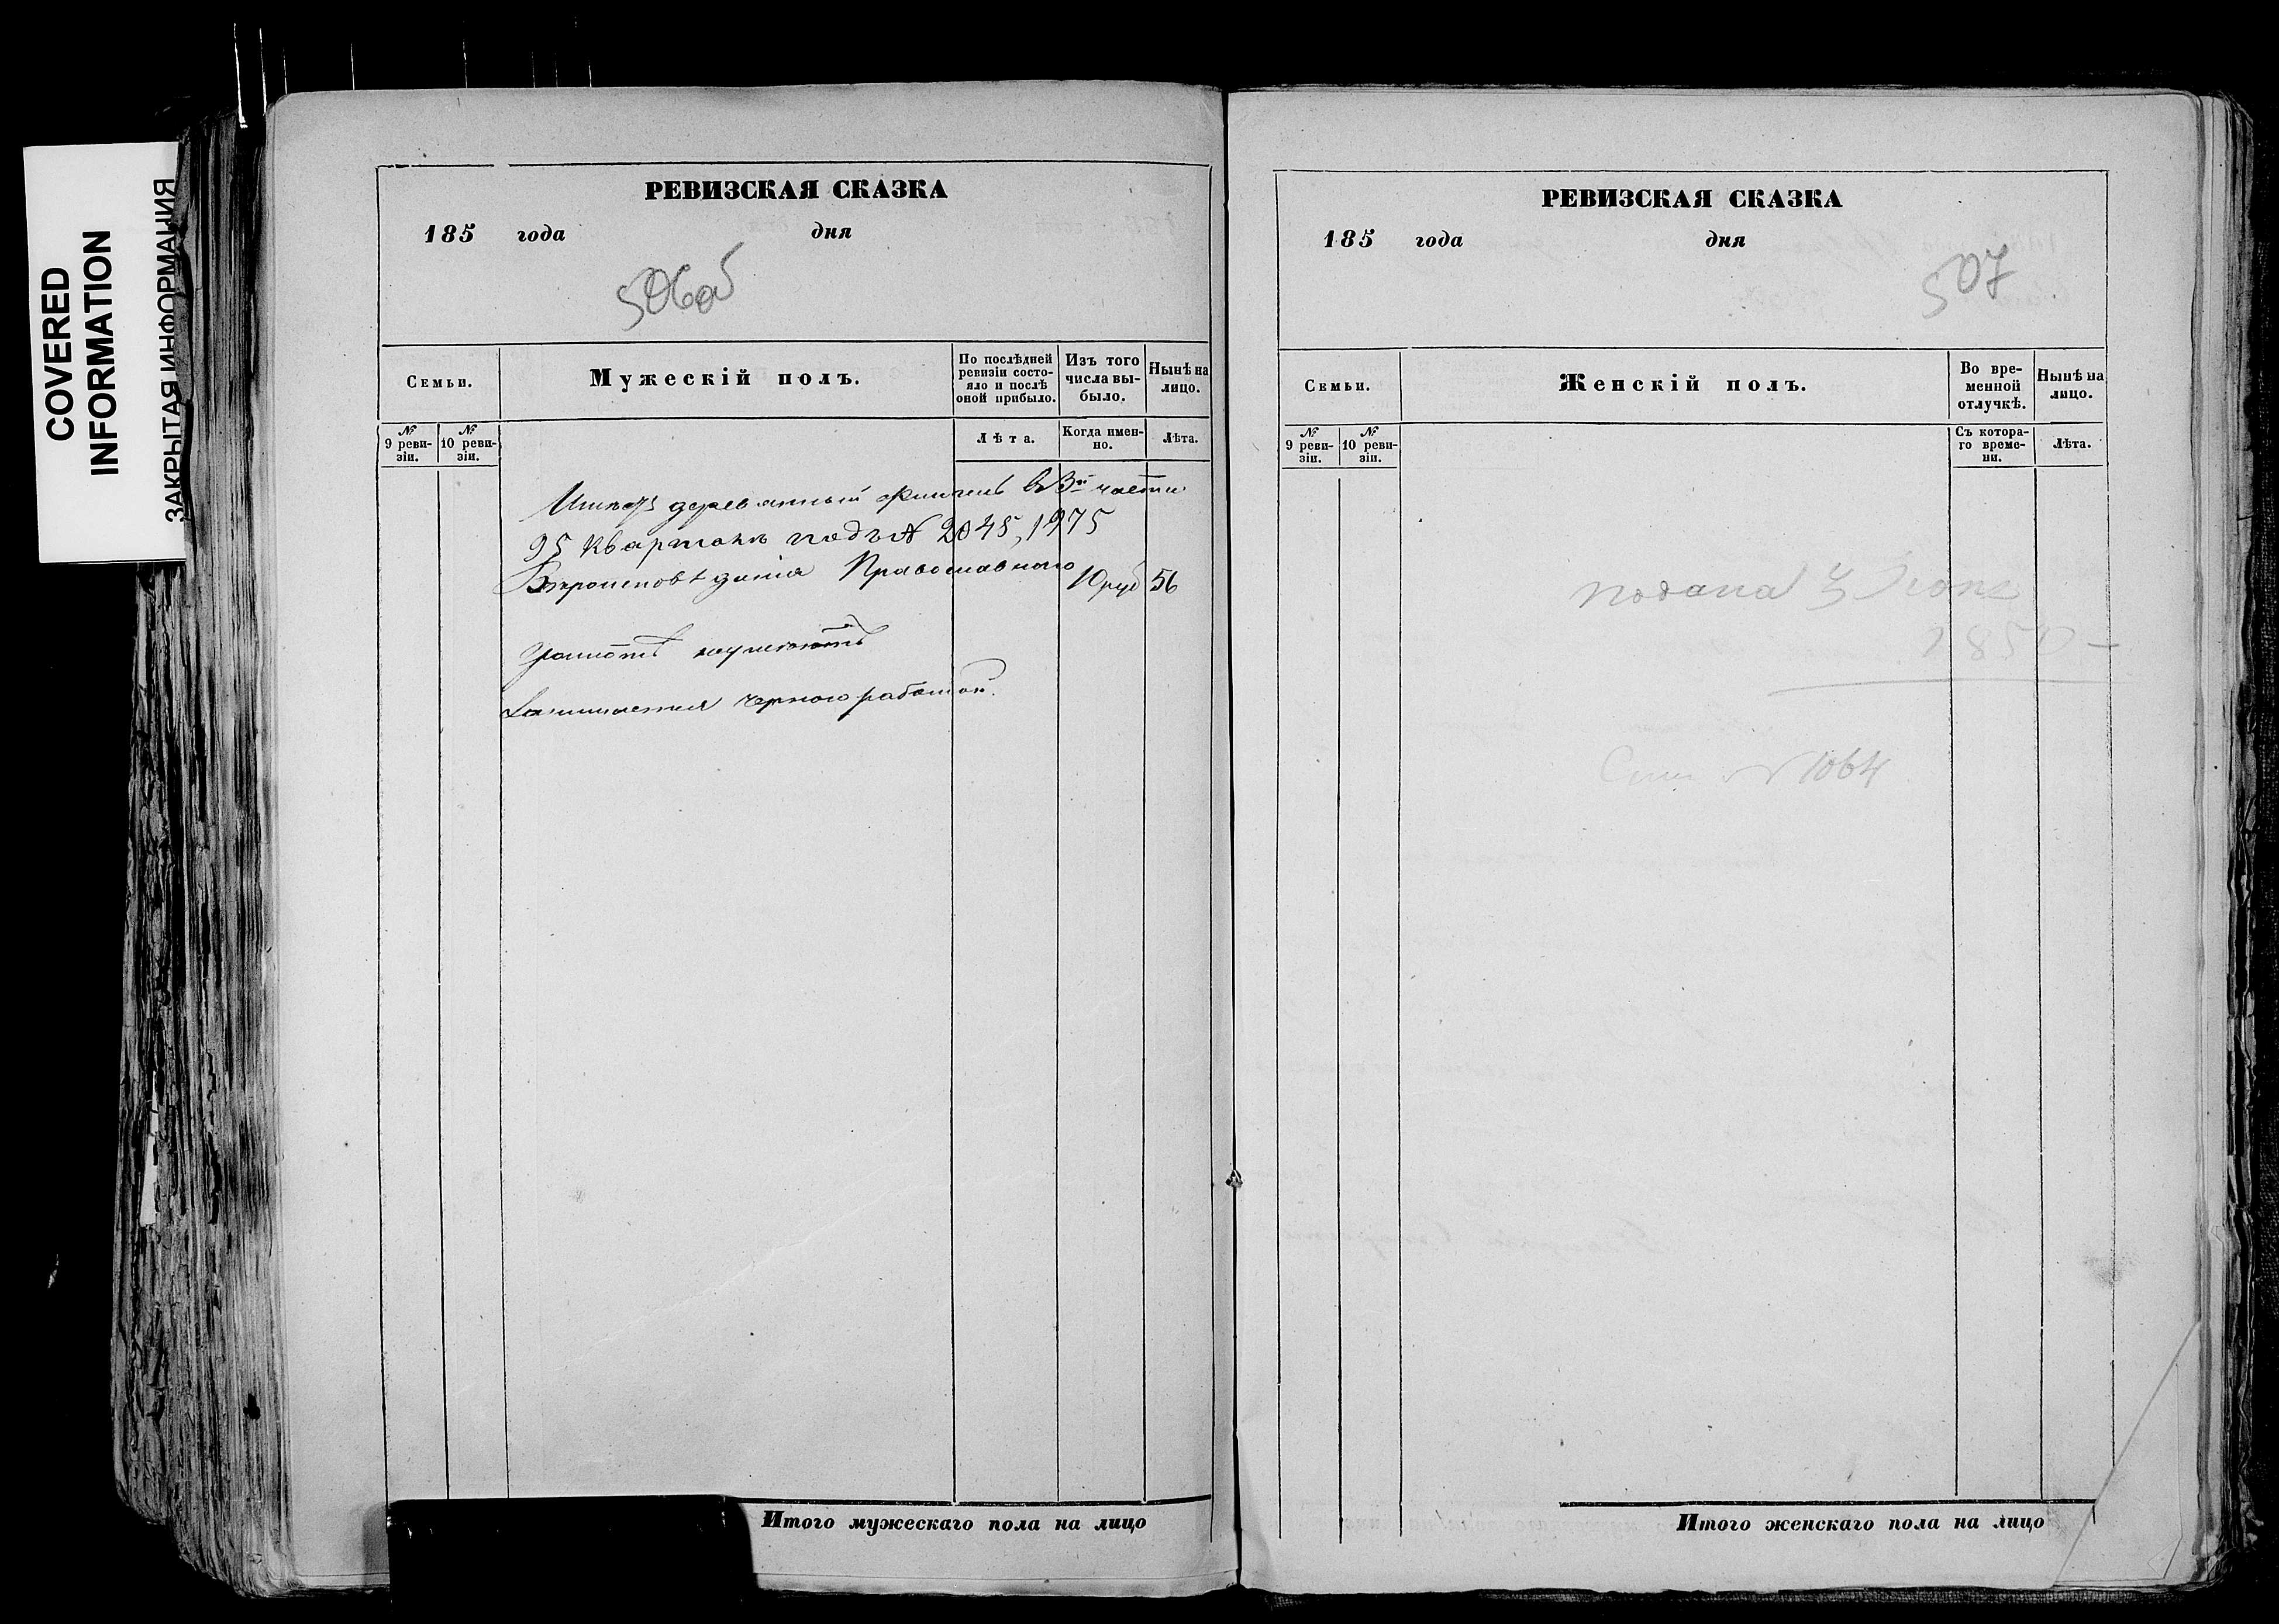 COVERED
INFORMATION
ЗАКРЫТАЯ ИНФОРМАЦИЯ
РЕВИЗСКАЯ СКАЗКА
185 года дня
506об
Семьи.
Мужескій полъ.
По послѣдней ревизіи состояло и послѣ оной прибыло.
Изъ того числа выбыло.
Нынѣ на лицо.
№ 9 ревизіи.
№ 10 ревизіи.
Лѣта.
Когда именно.
Лѣта.
деревянный въ 3й части
95 Квартала подъ № 2048, 1975
Вѣроисповѣданія Православнаго 10 руб 56
Грамотѣ
Занимается черною работой.
Итого мужескаго пола на лицо
РЕВИЗСКАЯ СКАЗКА
185 года дня
507
Семьи.
Женскій полъ.
Во временной отлучкѣ.
Нынѣ на лицо.
№ 9 ревизіи.
№ 10 ревизіи.
Съ котораго времени.
Лѣта.
Подана 3 Іюня
1850
№ 1064
Итого женскаго пола на лицо